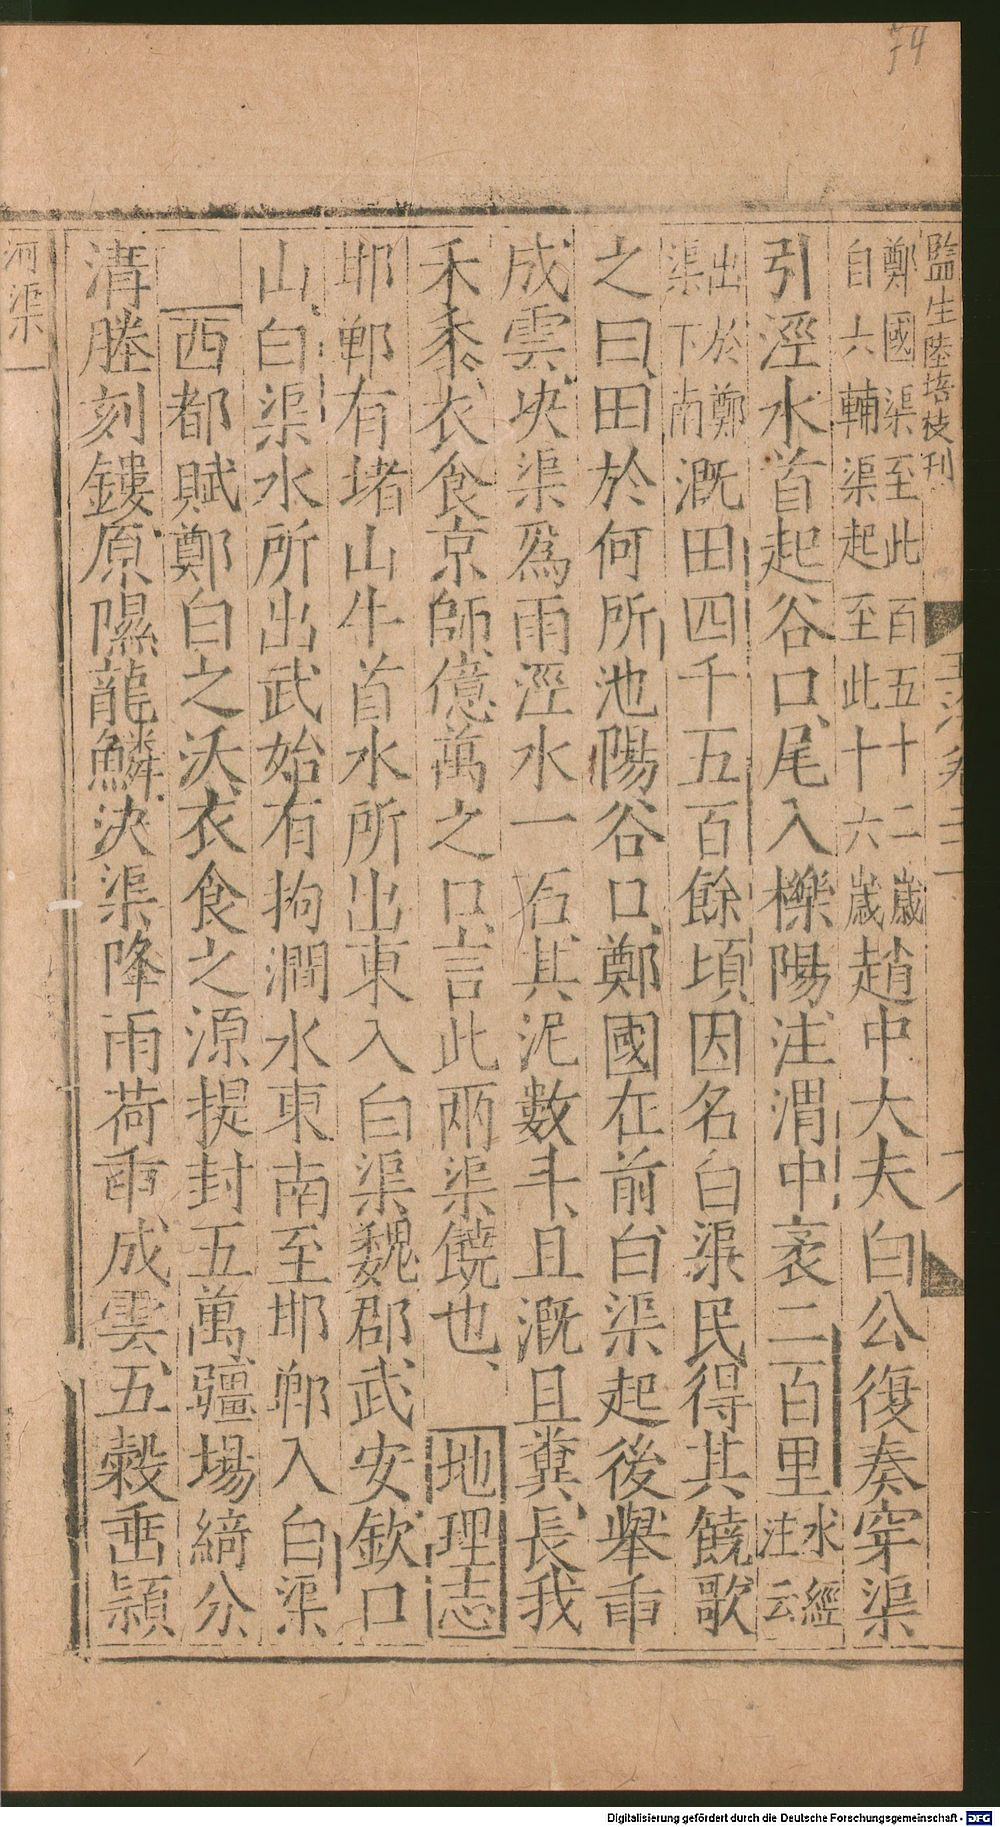 74
監生陸培校刊
玉海卷二十一
鄭國渠至此百五十二歲
自六輔渠起至此十六歲
趙中大夫白公復奏穿渠
引涇水首起谷口尾入櫟陽注渭中袤二百里
水經
注云
出於鄭
渠下南
溉田四千五百餘頃因名白渠民得其饒歌
之曰田於何所池陽谷口鄭國在前白渠起後舉臿
成雲決渠爲雨涇水一石其泥數斗且溉且糞長我
禾黍衣食京師億萬之口言此兩渠饒也 地理志
邯鄲有堵山牛首水所出東入白渠魏郡武安欽口
山白渠水所出武始有拘澗水東南至邯鄲入白渠
西都賦鄭白之沃衣食之源提封五萬疆埸綺分
溝塍刻鏤原隰龍鱗決渠降雨荷臿成雲五穀垂穎
河渠一
Digitalisierung gefördert durch die Deutsche Forschungsgemeinschaft - DFG